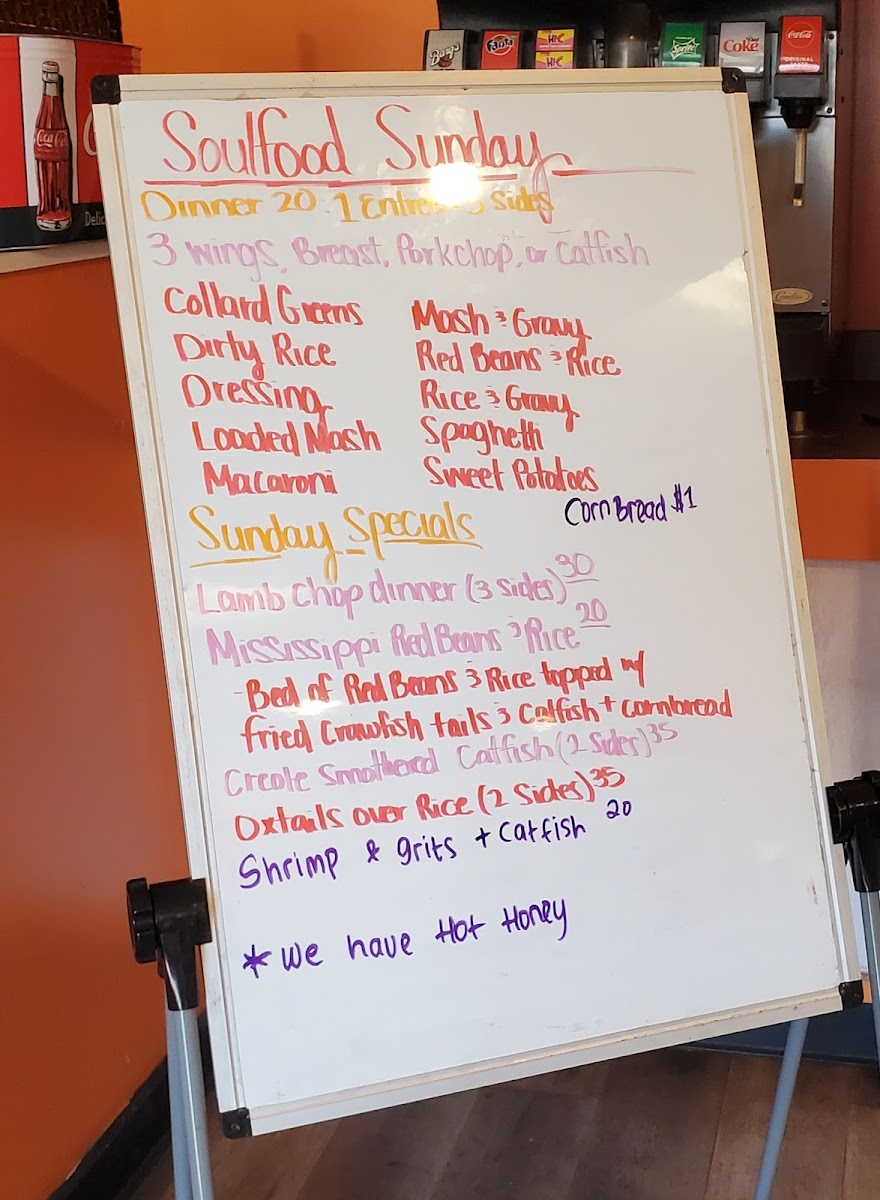 Barq's
Fanta
HI-C
HI-C
Sprite
Diet Coke
Coca-Cola
ORIGINAL TASTE
Coca-Cola
Delic
Soulfood Sunday
Dinner 20 : 1 Entree 3 sides
3 Wings, Breast, Porkchop, or Catfish
Collard Greens
Dirty Rice
Dressing
Loaded Mash
Macaroni
Mash & Gravy
Red Beans & Rice
Rice & Gravy
Spaghetti
Sweet Potatoes
Corn Bread $1
Sunday Specials
Lamb Chop dinner (3 sides) 30
Mississippi Red Beans & Rice 20
- Bed of Red Beans & Rice topped w/
fried Crawfish tails & Catfish + cornbread
Creole Smothered Catfish (2 Sides) 35
Oxtails over Rice (2 Sides) 35
Shrimp & grits + Catfish 20
* We have Hot Honey